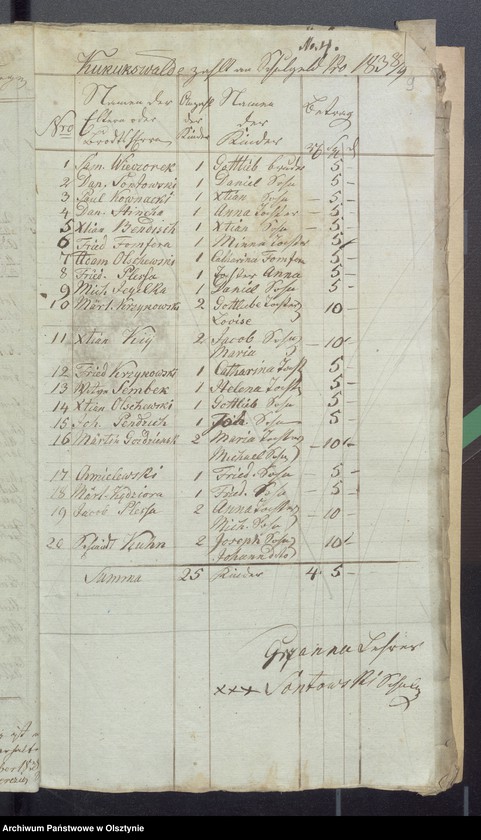 Kukukswalde zahlt an Schulgeld Pro 1838/9
9
Nro Namen der Eltern oder Brodtherrn Anzahl der Kinder Namen der Kinder Betrag
1 Sam. Wieczorek 1 Gottlieb 5 -
2 Dan. Sontowski 1 Daniel Sohn 5 -
3 Paul Kownacki 1 Xtian Sohn - 5 -
4 Dan. 1 Anna Tochter - 5 -
5 Xtian Bendisch 1 Xtian Sohn - 5 -
6 Fried 1 Minna Tochter 5
7 Adam Olschewski 1 Catharina 5 -
8 Fried. Plessa 1 Tochter Anna 5 -
9 Mich. 1 Daniel Sohn 5 -
10 Mart. Krzynowski 2 Gottliebe Tochter 10 -
Lovise
11 Xtian Kuy 2 Jacob Sohn - 10 -
Maria
12 Fried Krzynowski 1 Catharina Tocht 5
13 Sembek 1 Helena Tocht 5 -
14 Xtian Olschewski 1 Gottlieb Sohn 5 -
15 Joh. Bendrich 1 Joh. Sohn 5 -
16 Martin 2 Maria Tochter - 10 -
Michael Sohn
17 Chmielewski 1 Fried. Sohn - 5 -
18 Mart. Kędziora 1 Fried. Sohn - 5 -
19 Jacob Plessa 2 Anna Tochter - 10 -
Mich. Sohn
20 Schmidt Kuhn 2 Joseph Sohn - 10
Johann dito
Summa 25 Kinder 4 5 -
Lehrer
xxx Sontowski Schulz
Archiwum Państwowe w Olsztynie